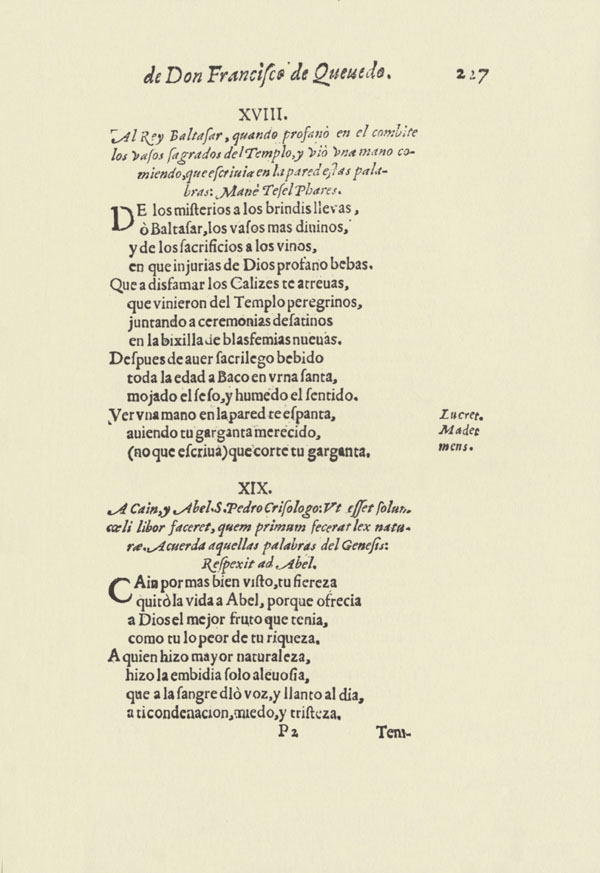 de Don Franciſco de Queuedo. 227
XVIII.
Al Rey Baltaſar, quando profanò en el combite
los vaſos ſagrados del Templo, y viò vna mano co-
miendo, que eſcriuia en la pared eſtas pala-
bras: Manè Teſel Phares.
DE los miſterios a los brindis lleuas,
ò Baltaſar, los vaſos mas diuinos,
y de los ſacrificios a los vinos,
en que injurias de Dios profano bebas.
Que a disfamar los Calizes te atreuas,
que vinieron del Templo peregrinos,
juntando a ceremonias deſatinos
en la bixilla de blasfemias nueuas.
Deſpues de auer ſacrilego bebido
toda la edad a Baco en vrna ſanta,
mojado el ſeſo, y humedo el ſentido.
Ver vna mano en la pared te eſpanta, Lucret.
auiendo tu garganta merecido, Madet
(no que eſcriua) que corte tu garganta. mens.
XIX.
A Cain, y Abel. S. Pedro Criſologo: Vt eſſet ſolum
cœli libor faceret, quem primum fecerat lex natu-
ræ. Acuerda aquellas palabras del Geneſis:
Reſpexit ad Abel.
CAin por mas bien viſto, tu fiereza
quitò la vida a Abel, porque ofrecia
a Dios el mejor fruto que tenia,
como tu lo peor de tu riqueza.
A quien hizo mayor naturaleza,
hizo la embidia ſolo aleuoſia,
que a la ſangre diò voz, y llanto al dia,
a ti condenacion, miedo, y triſteza.
P2 Tem-